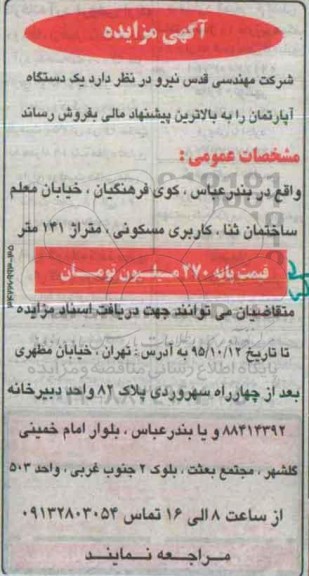 آگهی مزایده
شرکت مهندسی قدس نیرو در نظر دارد یک دستگاه
آپارتمان را به بالاترین پیشنهاد مالی بفروش رساند
مشخصات عمومی :
واقع در بندرعباس ، کوی فرهنگیان ، خیابان معلم
ساختمان ثنا ، کاربری مسکونی ، متراژ ۱۳۱ متر
قیمت پایه ۲۷۰ میلیون تومان
متقاضیان می توانند جهت دریافت اسناد مزایده
تا تاریخ ۹۵/۱۰/۱۲ به آدرس : تهران ، خیابان مطهری
بعد از چهارراه سهروردی پلاک ۸۲ واحد دبیرخانه
۸۸۴۱۴۳۹۲ و یا بندرعباس ، بلوار امام خمینی
گلشهر ، مجتمع بعثت ، بلوک ۲ جنوب غربی ، واحد ۵۰۳
از ساعت ۸ الی ۱۶ تماس ۰۹۱۳۲۸۰۳۰۵۴
مراجعه نمایند